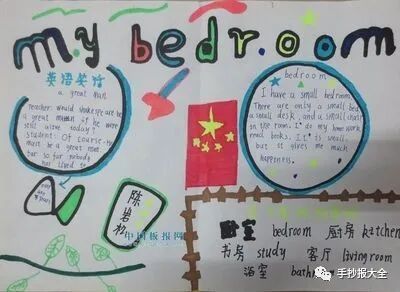 my bedroom
英语笑话
a great man
Teacher: Would Shakespeare be
a great man if he were
still alive today?
Student: Of course. He
must be a great man
for so far nobody
has lived to
bedroom
I have a small bedroom.
There are only a small bed
a small desk, and a small chair
in the room. I do my homework,
read books. It is small,
but it gives me much
happiness.
陈岩松
中国板报网
卧室 bedroom 厨房 kitchen
书房 study 客厅 livingroom
浴室
手抄报大全